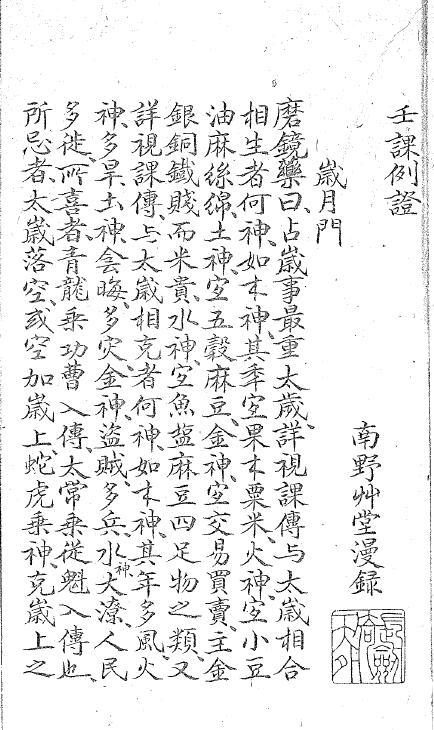 壬課例證
南野艸堂漫録
歲月門
磨鏡藥曰、占歲事最重太歲、詳視課傳与太歲相合
相生者何神、如木神、其年宐果木粟米、火神、宐小豆
油麻絲綿、土神、宐五穀麻豆、金神、宐交易買賣、主金
銀銅鐵賤而米貴、水神、宐魚盐麻豆四足物之類、又
詳視課傳、与太歲相克者何神、如木神、其年多風、火
神、多旱、土神、会晦多灾、金神、盜賊、多兵、水神大潦、人民
多徙、所喜者、青龍乗功曹入傳、太常乗從魁入傳也、
所忌者、太歲落空、或空加歲上、蛇虎乗神、克歲上之